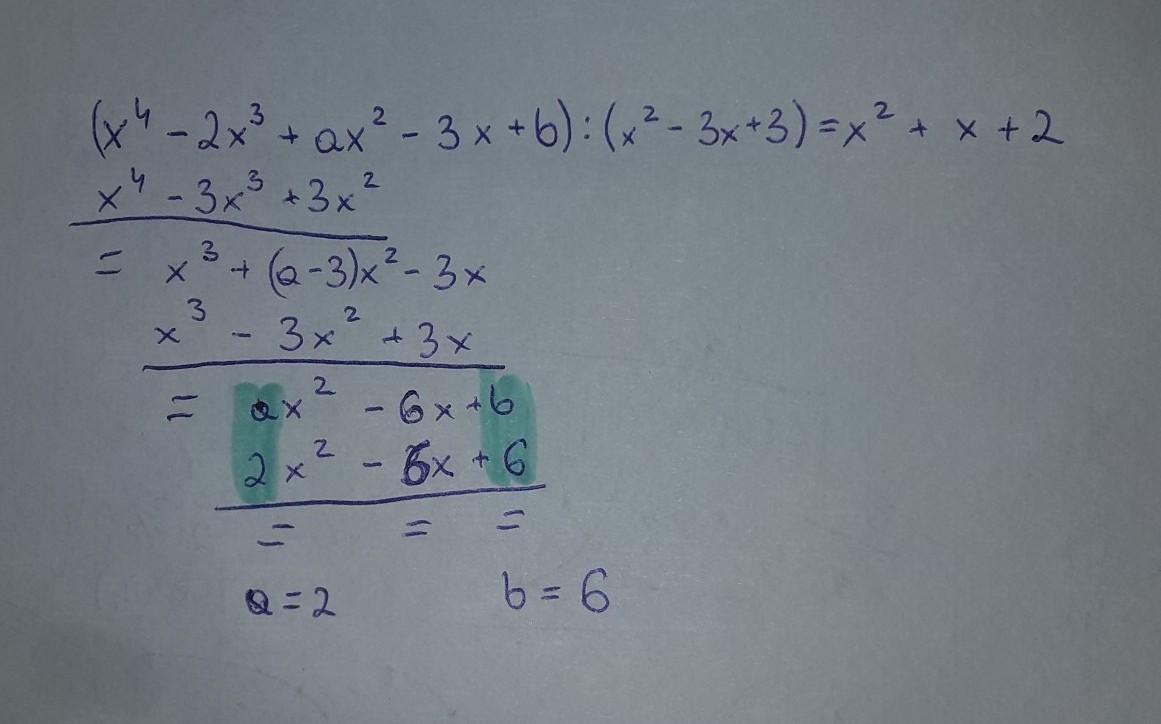 (x⁴ - 2x³ + ax² - 3x + b) : (x² - 3x + 3) = x² + x + 2
x⁴ - 3x³ + 3x²
= x³ + (a-3)x² - 3x
x³ - 3x² + 3x
= ax² - 6x + b
2x² - 6x + 6
= = =
a = 2 b = 6